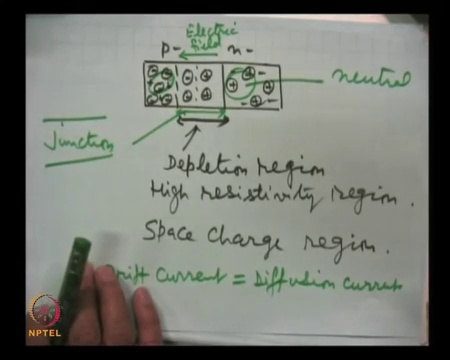 Electric
field
p-
n-
neutral
Junction
Depletion region
High resistivity region.
Space Charge region.
Current = Diffusion Current
NPTEL